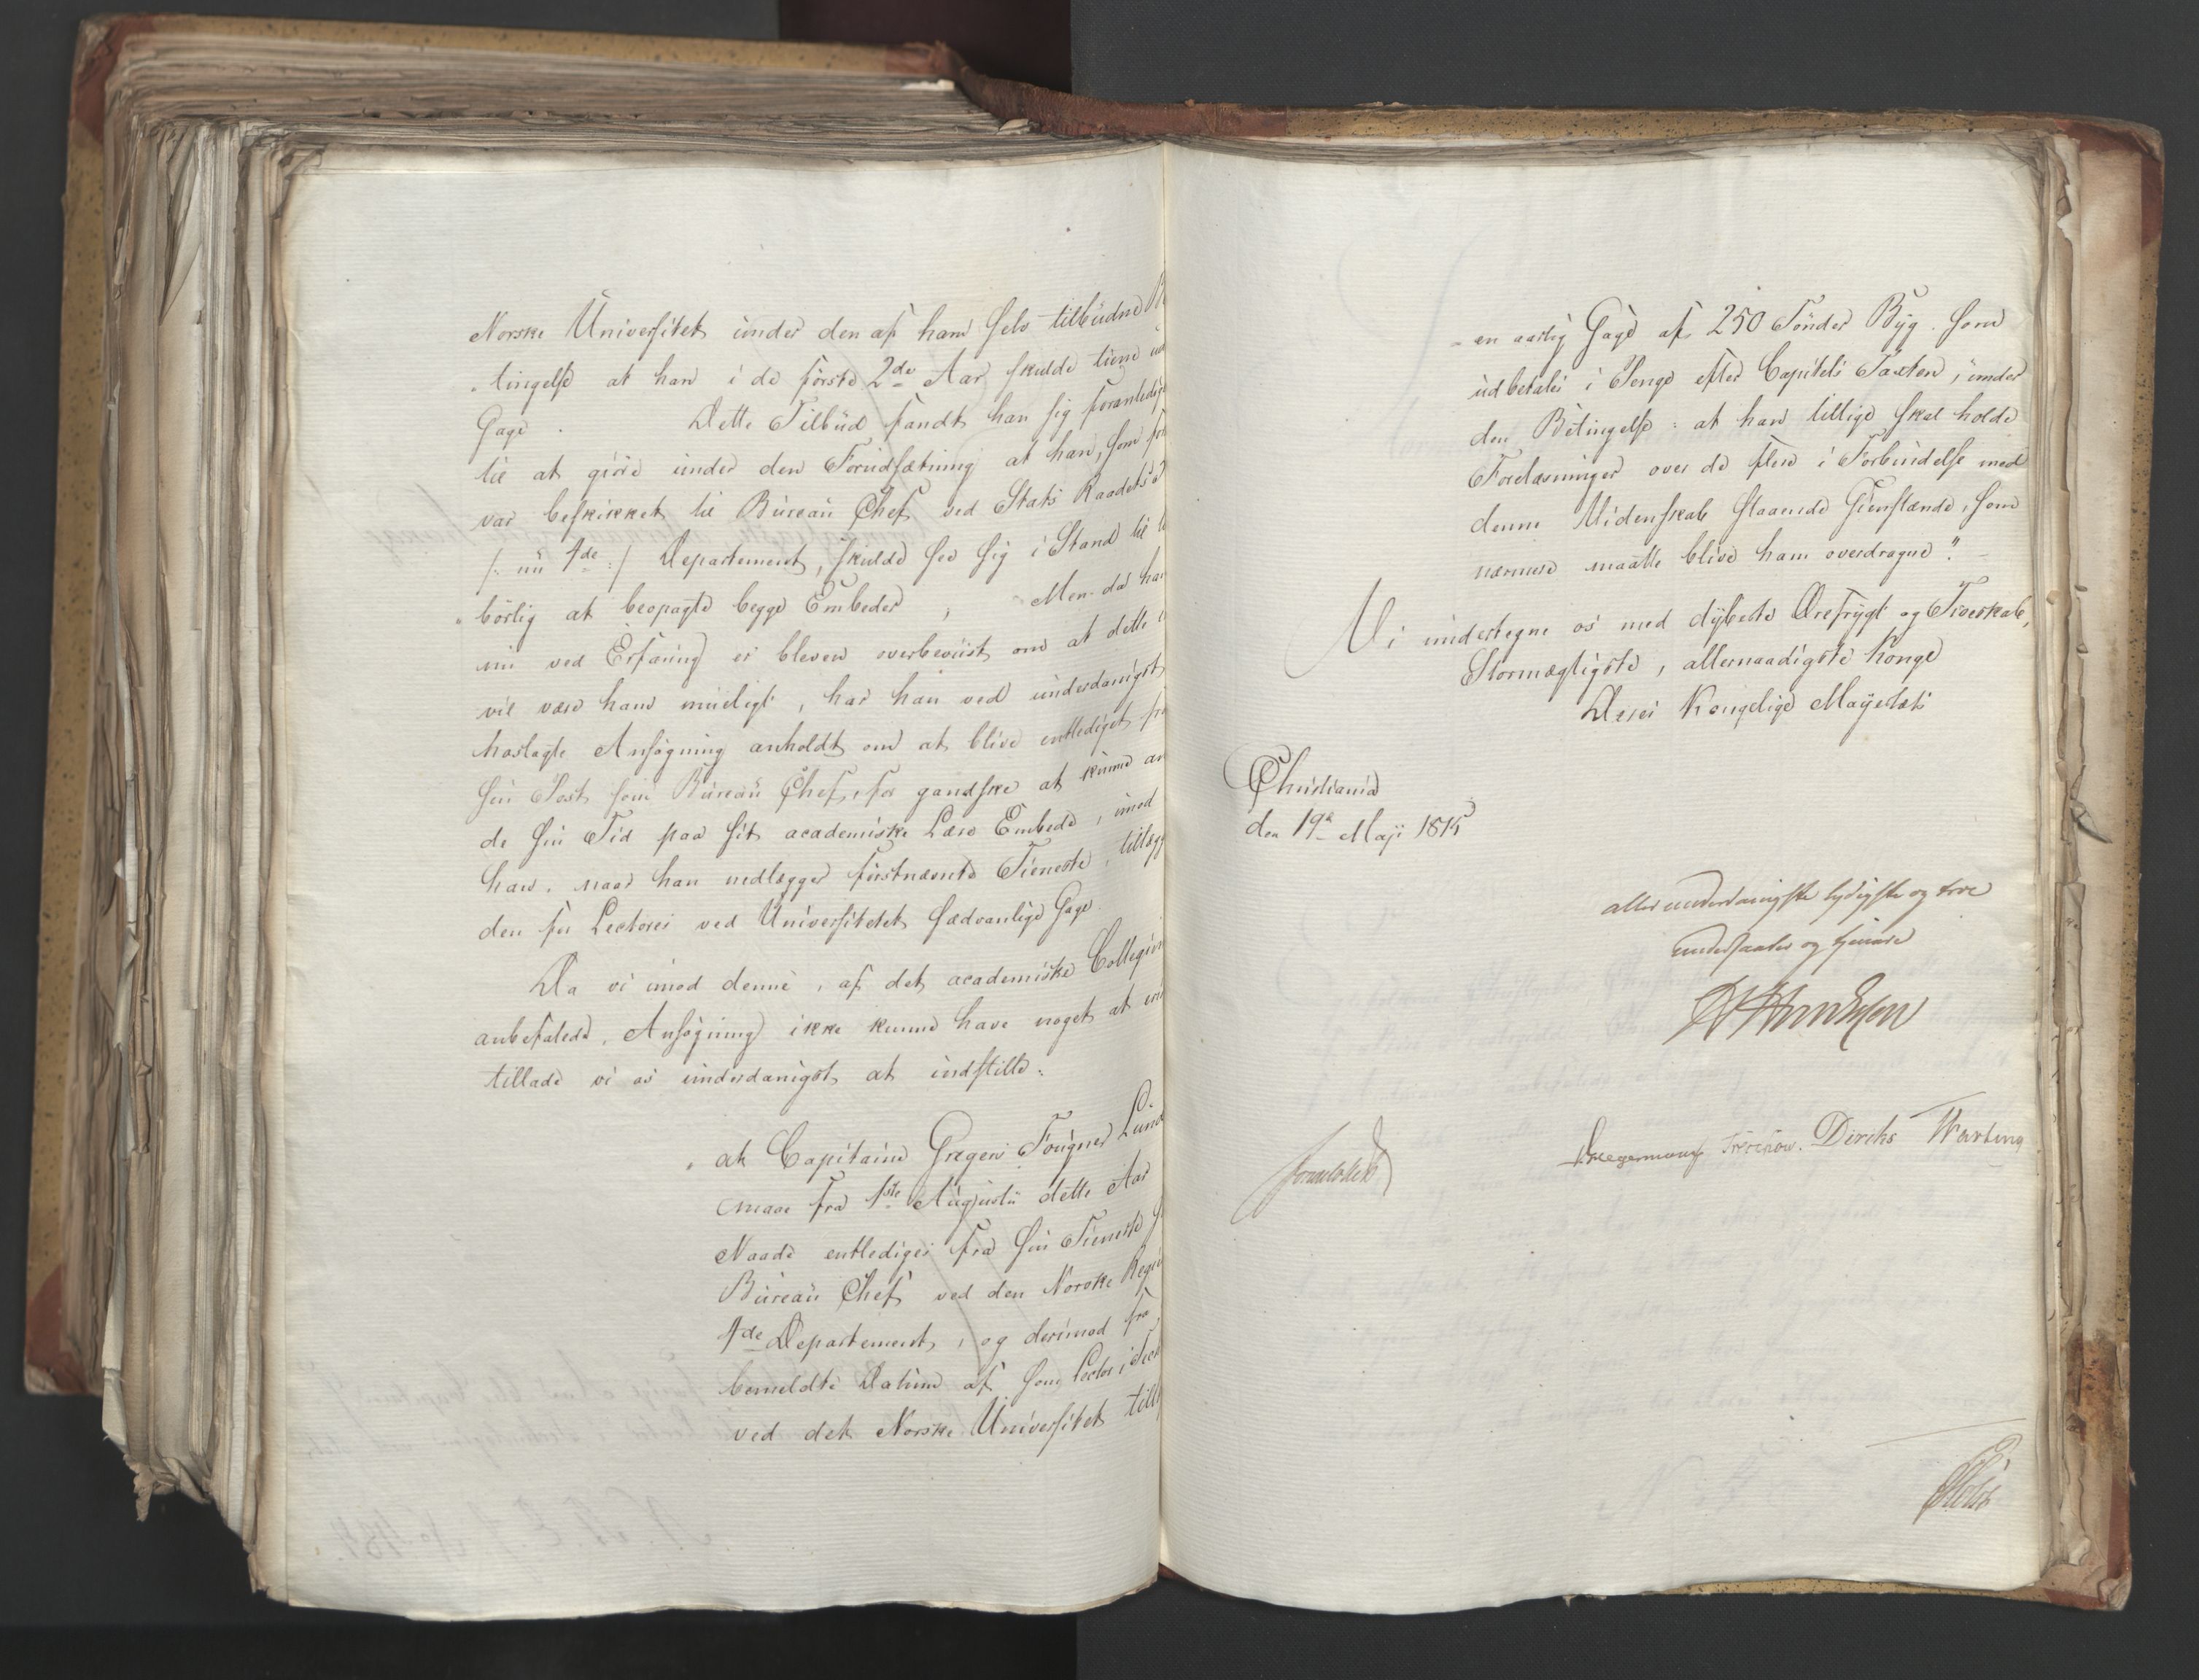 Norske Universitet under den af ham selv tilbudne B
tingelse at han i de første 2de Aar skulde tiene ud
Gage. Dette Tilbud fandt han sig foranledig
til at giøre under den Forudsætning at han, som før
var beskikket til Bureau Chef ved Stats Raadets 2
/: nu 4de :/ Departement, skulde see sig i Stand til t
børlig at beopagte begge Embeder, Men da han
nu ved Erfaring er bleven overbeviist om at dette i
vil være ham mueligt, har han ved underdanigst
hoslagte Ansøgning anholdt om at blive entlediget fra
sin Post som Bureau Chef, for gandske at kunne an
de sin Tid paa sit academiske Lære Embede, imod
han, naar han nedlægger førstnævnte Tieneste, tillægg
den for Lectorer ved Universitetet sædvanlige Gage.
Da vi imod denne, af det academiske Collegiu
anbefalede, Ansøgning ikke kunne have noget at eri
tillade vi os underdanigst at indstille:
„at Capitaine Gregers Fougner Lund
maae fra 1ste Augustii dette Aar
Naade entlediges fra sin Tieneste s
Bureau Chef ved den Norske Regie
4de Departement, og derimod fra
bemeldte Datum af som Lector i Tech
ved det Norske Universitet till
en aarlig Gage af 250 Tønder Byg som
udbetales i Penge efter Capitels Taxten, under
den Betingelse: at han tillige skal holde
Forelæsninger over de flere i Forbindelse med
denne Videnskab staaende Gienstande, som
nærmere maatte blive ham overdragne".
Vi undertegne os med dybeste Ærefrygt og Troeskab,
Stormægtigste, allernaadigste Konge
Deres Kongelige Mayestæts
Christiania
den 19de Maji 1815
allerunderdanigste lydigste og troe
undersaatter og tjenere
Kregermann Treschow. Diriks Wærting
Holst